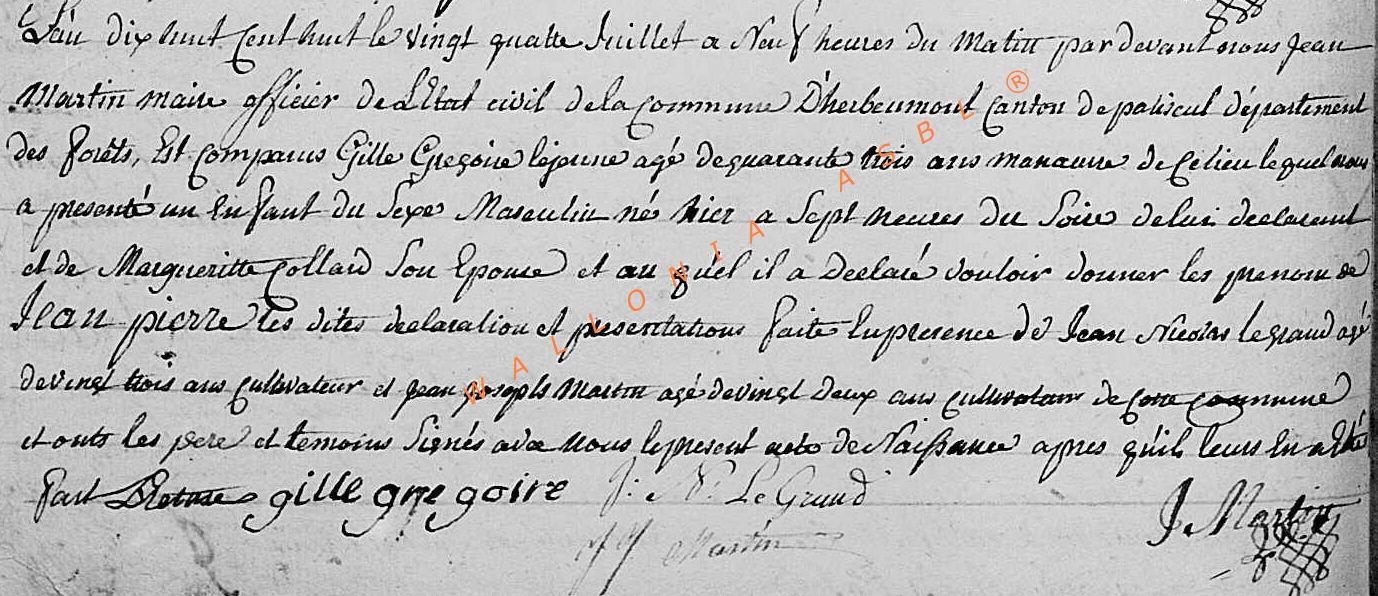 L'an dix huit Cent huit le vingt quatre Juillet a Neuf heures du Matin par devant nous Jean
Martin maire officier de L'Etat civil de la commune D'herbeumont Canton de paliseul département
des forêts, Est Comparus Gille Gregoire lejeune agé de quarante trois ans manœuvre de Ce lieu lequel nous
a presenté un Enfant du Sexe Masculin né hier a Sept heures du Soire de lui declarant
et de Margueritte Collard Son Epouse et au quel il a Declaré vouloir donner les prenom de
Jean pierre les dites declaration et presentations faite En presence de Jean Nicolas le grand agé
de vingt trois ans cultivateur et Jean Joseph Martin agé de vingt Deux ans cultivateur de Cette commune
et onts les pere et temoins Signés avec nous le present acte de Naissance apres qu'il leurs En a Eté
fait Lecture gille gregoire J: N: Le Grand J. Martin
JJ Martin
WALLONIA ASBL ®